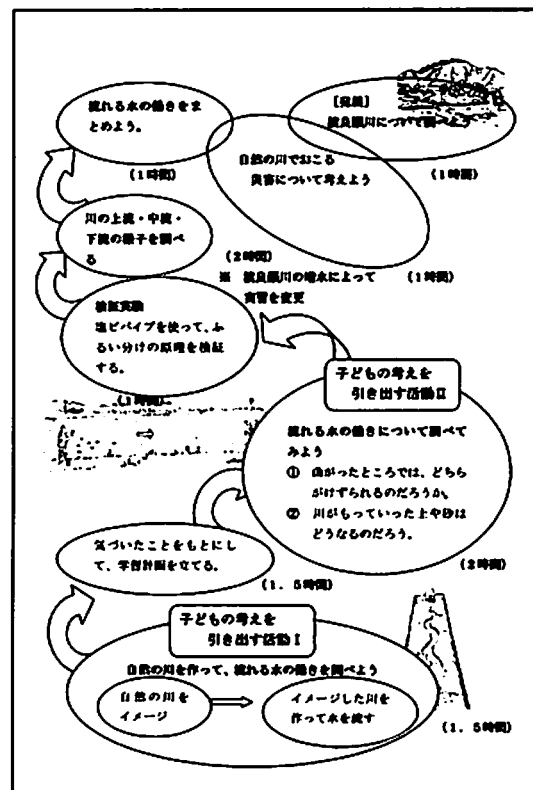 流れる水の働きをま
とめよう。
(1時間)
[発展]
について調べよう
(1時間)
自然の川でおこる
災害について考えよう
(1時間)
川の上流・中流・
下流の様子を調べ
る
(2時間)
※ 川の増水によって
実習を変更
検証実験
塩ビパイプを使って、ふ
るい分けの原理を検証
する。
(1時間)
子どもの考えを
引き出す活動Ⅱ
流れる水の働きについて調べて
みよう
① 曲がったところでは、どちら
がけずられるのだろうか。
② 川がもっていった土や砂は
どうなるのだろう。
(2時間)
気づいたことをもとにし
て、学習計画を立てる。
(1.5時間)
子どもの考えを
引き出す活動Ⅰ
自然の川を作って、流れる水の働きを調べよう
自然の川を
イメージ
イメージした川を
作って水を流す
(1.5時間)